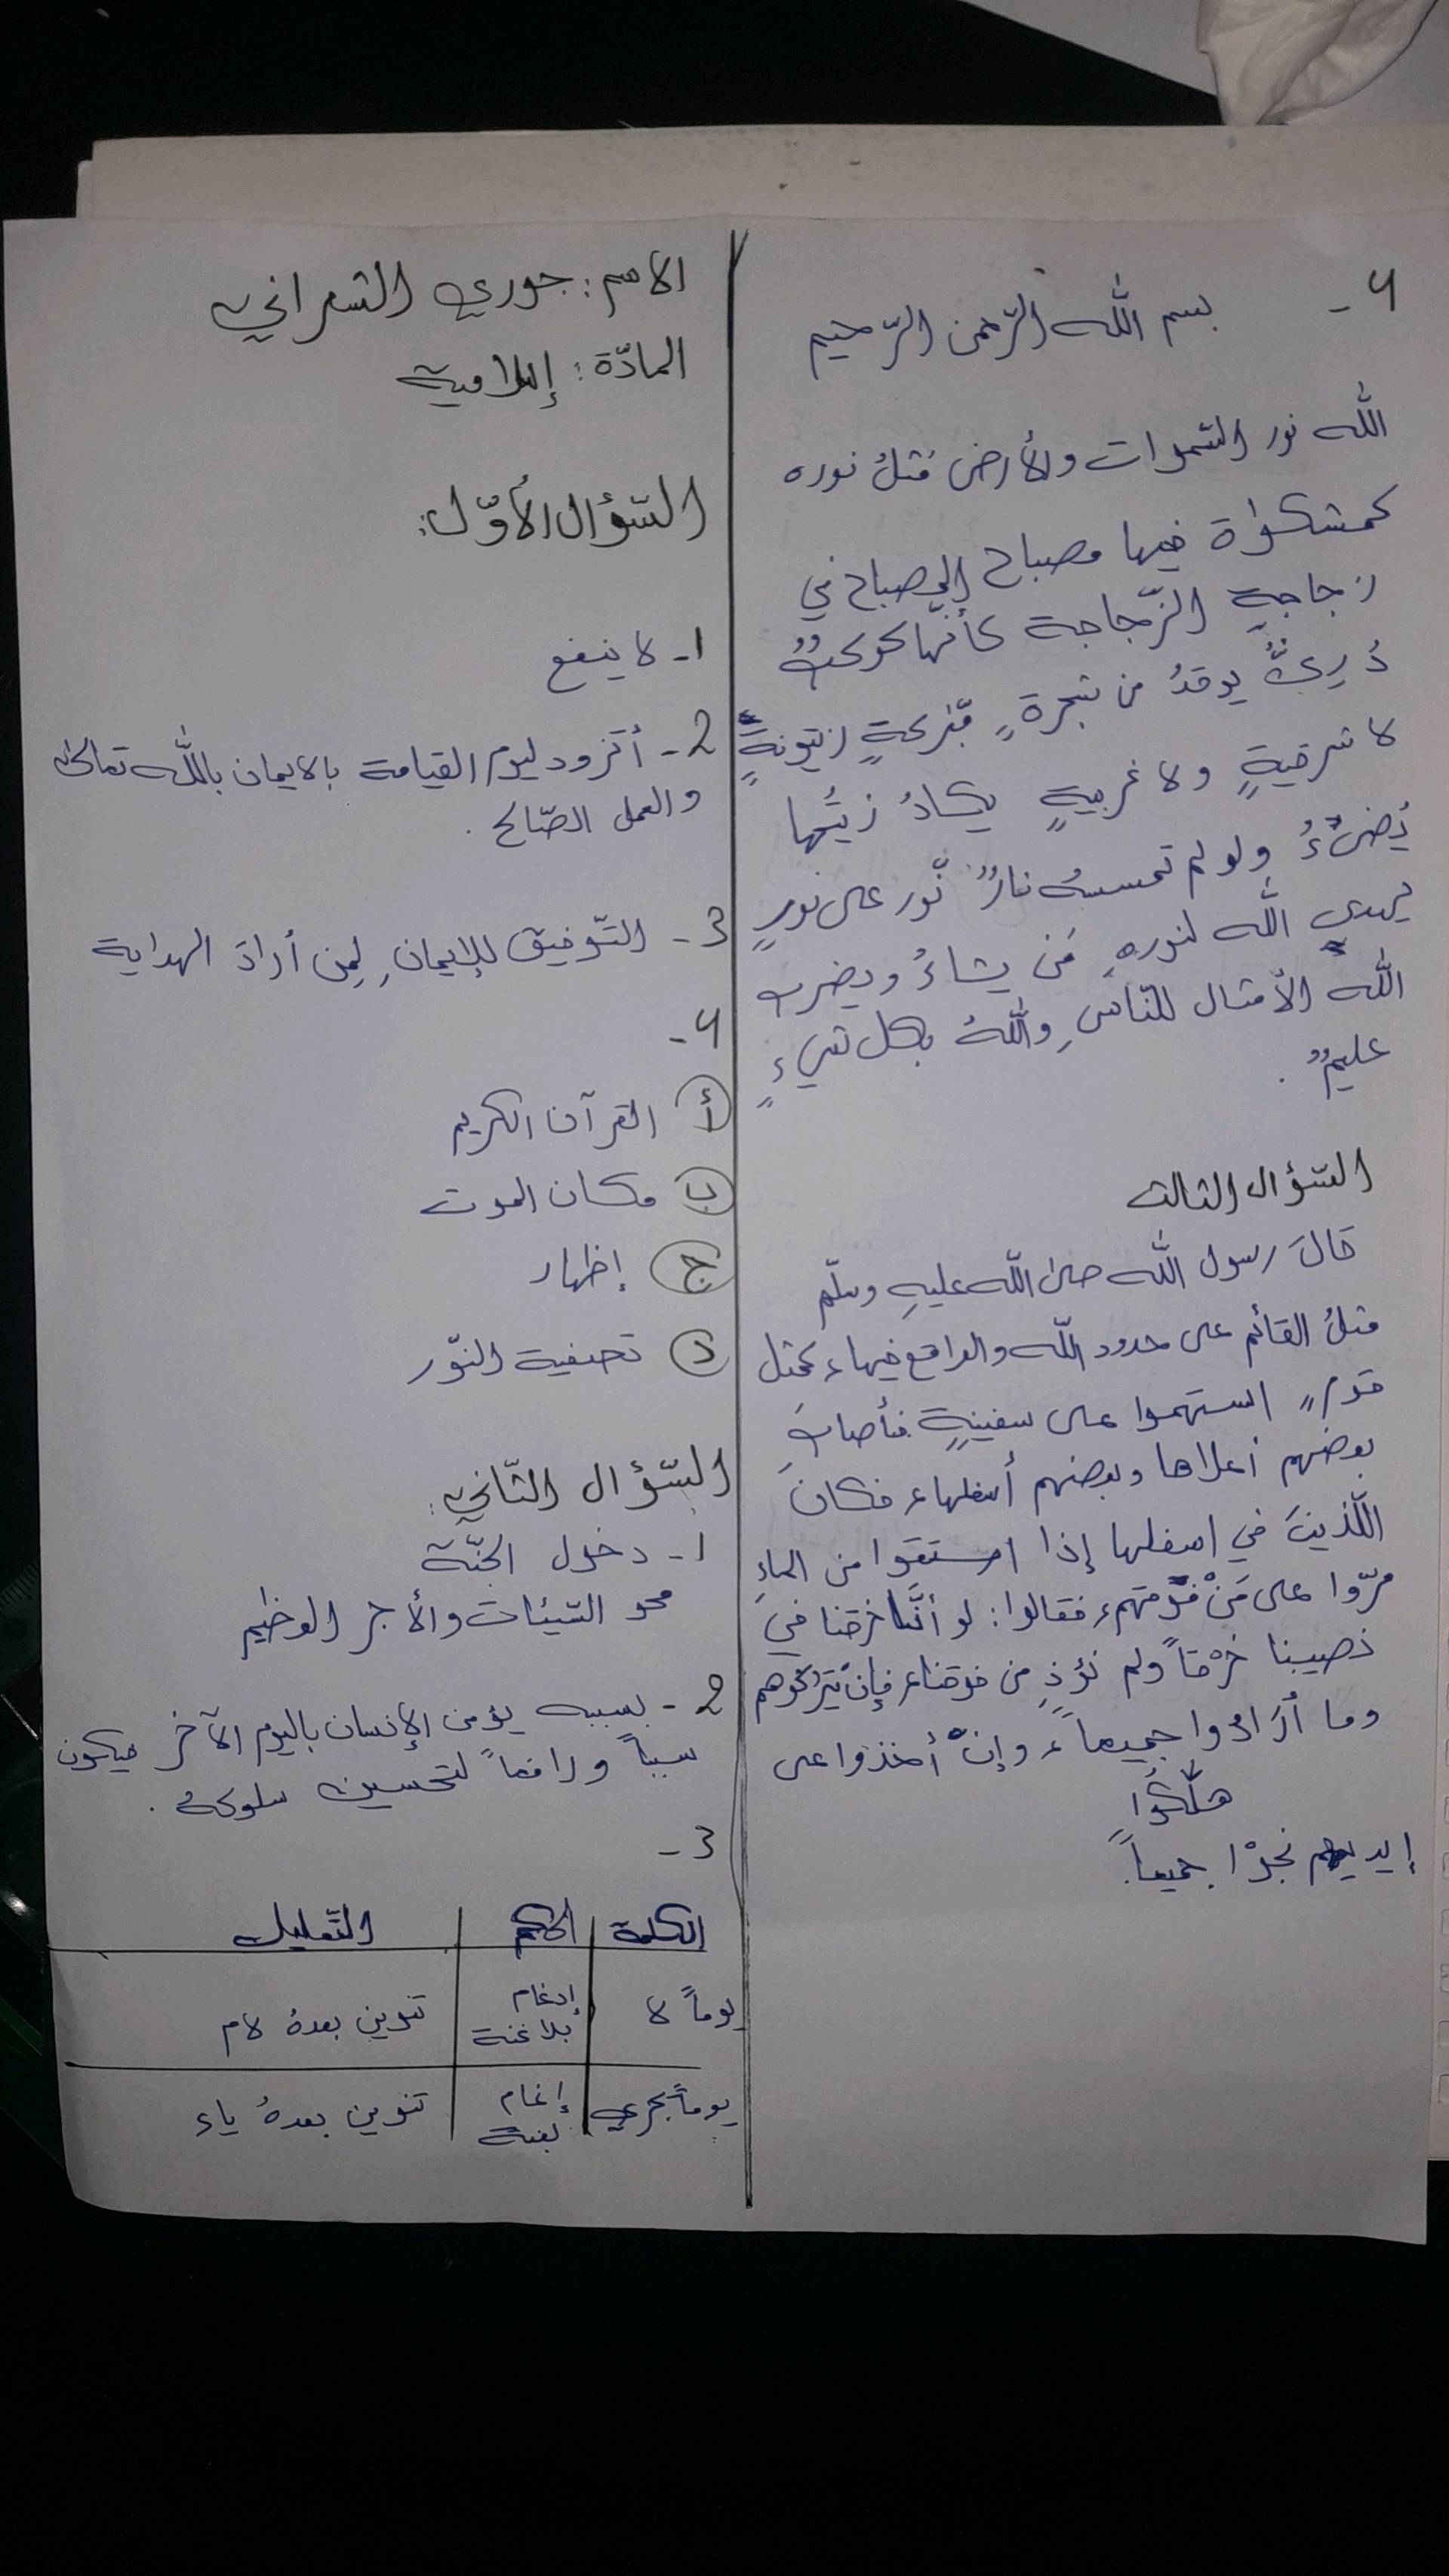 الاسم: جوري الشعراني
المادّة: إسلامية
السّؤال الأوّل:
1- لا ينفع
2- أتزود ليوم القيامة بالايمان بالله تعالى
والعمل الصّالح.
3- التّوفيق للإيمانِ لِمن أرادَ الهداية
4-
أ القرآن الكريم
ب مكان الموت
ج إظهار
د تصفية النّور
السّؤال الثّاني:
1- دخول الجنّة
محو السّيئات والأجر العظيم
2- بسببه يؤمن الإنسان باليوم الآخر فيكون
سبباً ودافعاً لتحسين سلوكهُ.
3-
الكلمة الحكم التّعليل
يوماً لا إدغام بلا غنة تنوين بعدهُ لام
يوماً يجري إغام بغنة تنوين بعدهُ ياء
4-
بسم الله الرّحمن الرّحيم
الله نور السّموات والأرض مَثلُ نوره
كمشكواة فيها مصباح المصباح في
زجاجةٍ الزّجاجة كأنّها كوكبٌ
دُريٌّ يوقدُ من شجرةٍ مّبٰركةٍ زيتونةٍ
لا شرقيةٍ ولا غربيةٍ يكادُ زيتُها
يُضىءُ ولو لم تمسسهُ نارٌ نّور على نورٍ
يهدي الله لنورهِ مَن يشاءُ ويضرب
اللهُ الأمثال للنّاسِ واللهُ بكل شيءٍ
عليمٌ.
السّؤال الثالث
قالَ رسول الله صلى الله عليهِ وسلّم
مثلُ القائم على حدود الله والواقع فيها، كمثل
قومٍ استهموا على سفينةٍ فأصابَ
بعضهم أعلاها وبعضهم أسفلها، فكانَ
اللّذينَ في اسفلها إذا استقوا من الماءِ
مرّوا على مَنْ فوْقهم، فقالوا: لو أنّا خرقنا في
نصيبنا خرْقاً ولم نؤذِ من فوقنا، فإنْ يتركوهم
وما أرَادوا جميعاً، وإنْ أخذوا على
هلَكُوا
إيديهم نجوْا جميعاً.